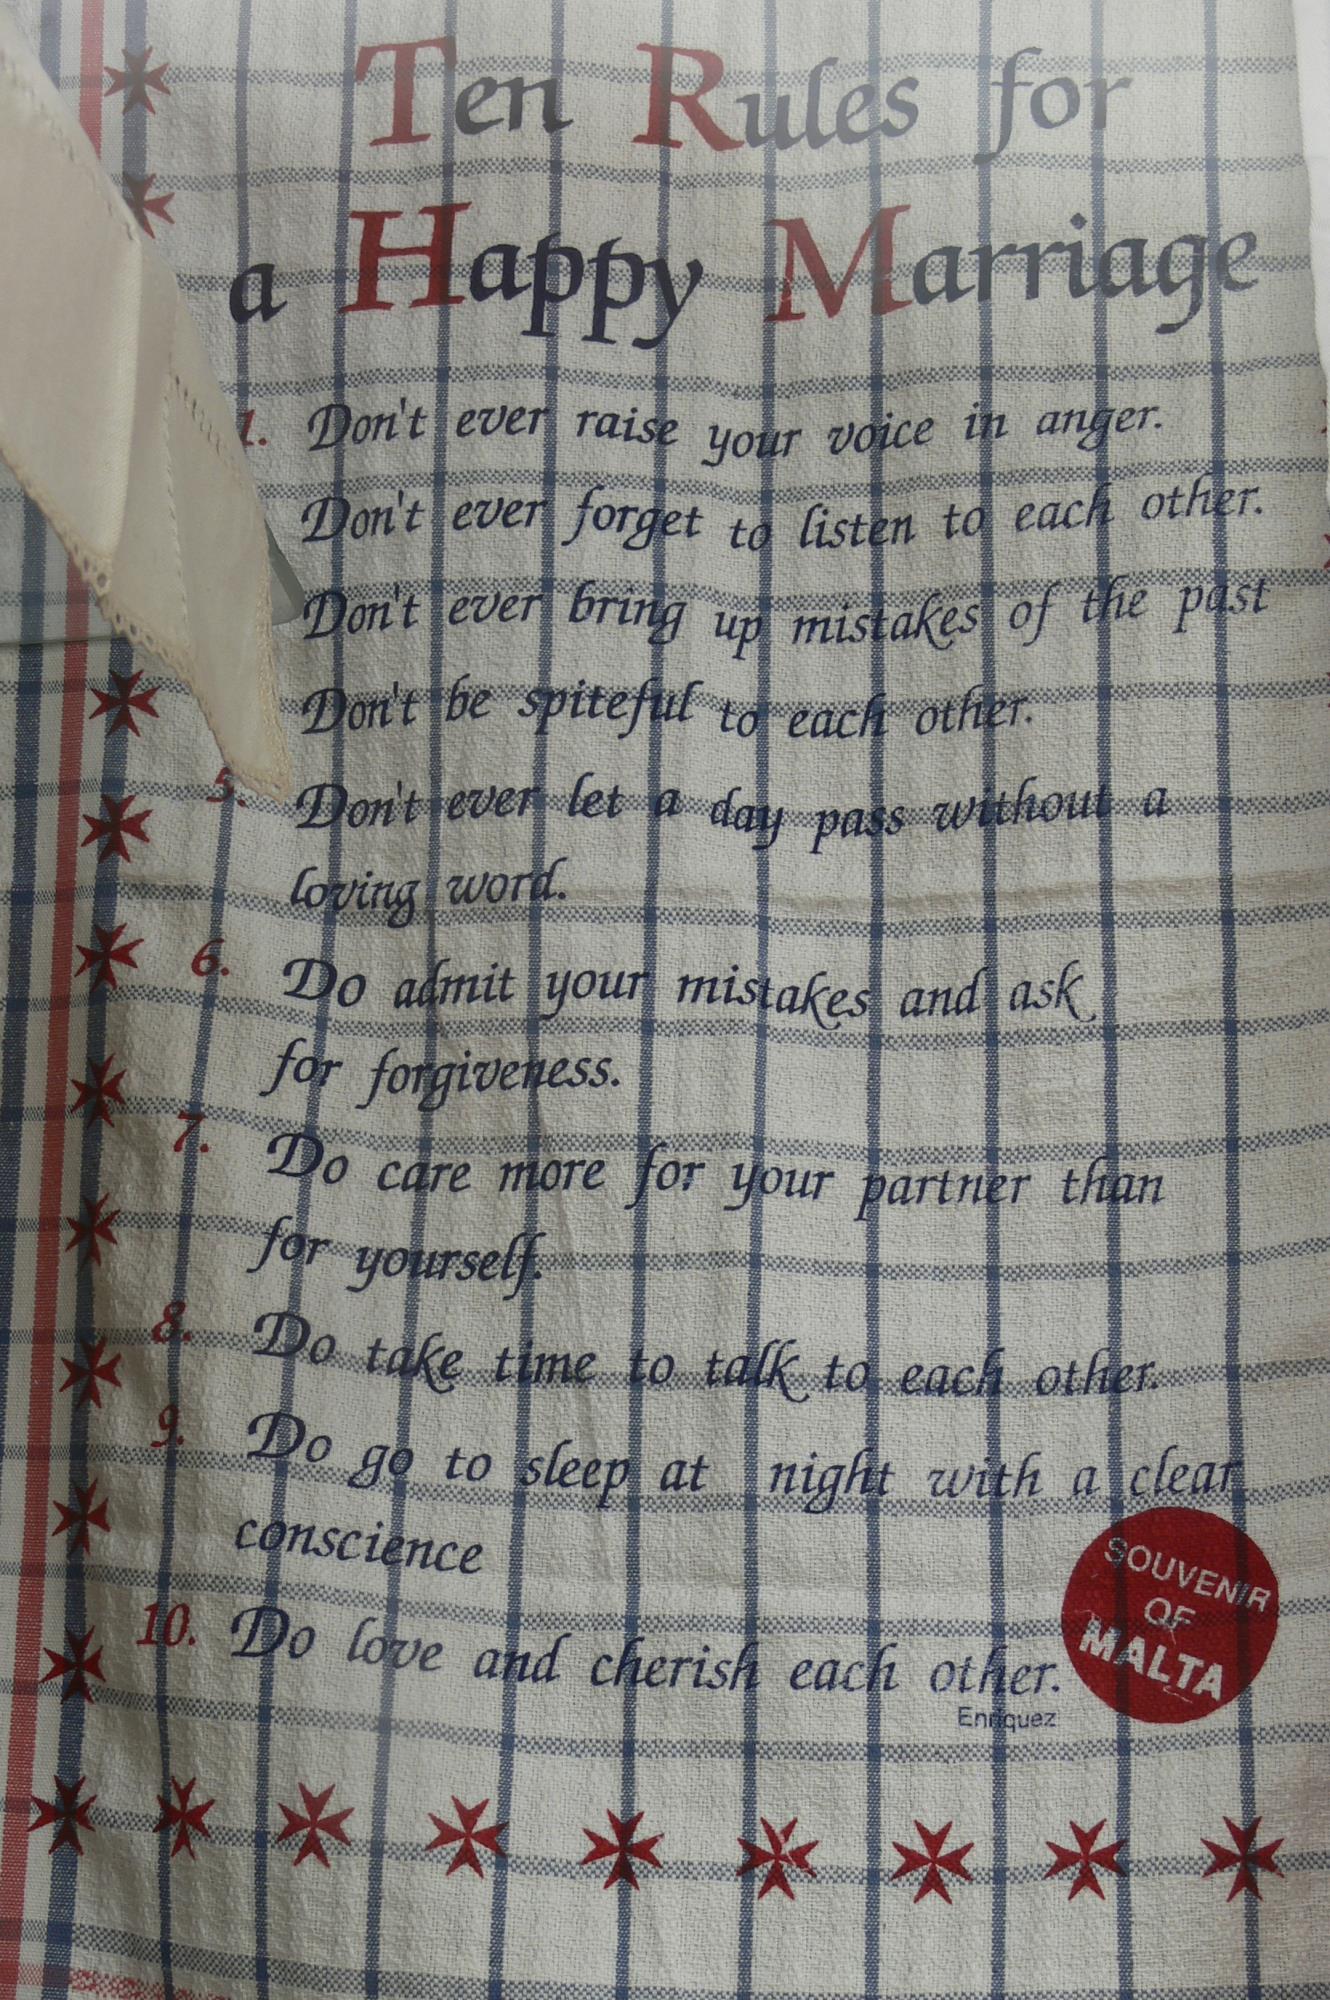 Ten Rules for
a Happy Marriage
1. Don't ever raise your voice in anger.
Don't ever forget to listen to each other.
Don't ever bring up mistakes of the past
Don't be spiteful to each other.
5. Don't ever let a day pass without a
loving word.
6. Do admit your mistakes and ask
for forgiveness.
7. Do care more for your partner than
for yourself.
8. Do take time to talk to each other.
9. Do go to sleep at night with a clear
conscience
10. Do love and cherish each other.
Enriquez
SOUVENIR
OF
MALTA